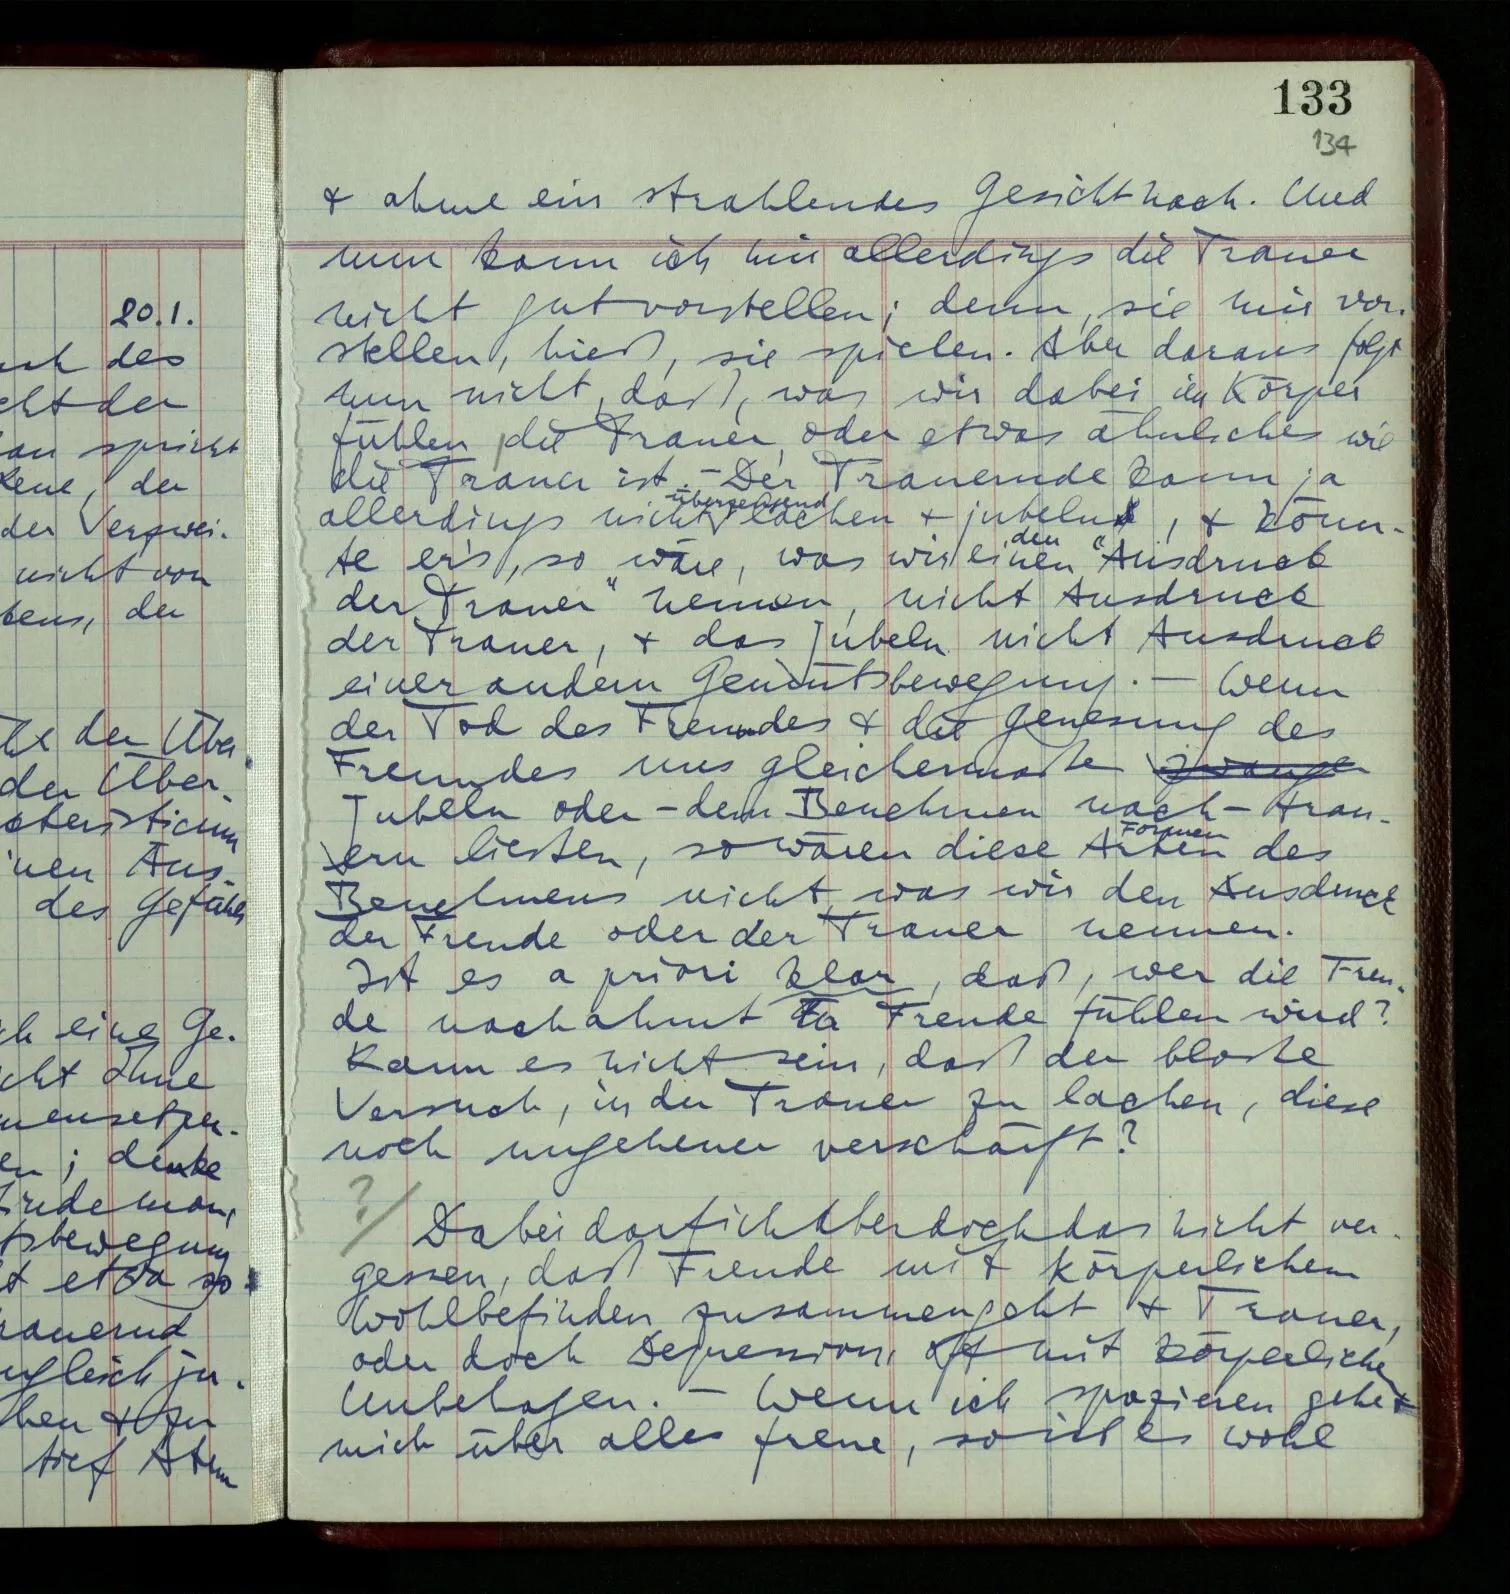 20.1.
des
der
spricht
der
der Verzwei-
nicht von
der
der Über-
der Über-
Aus-
des Gefühls
eine Ge-
ohne
denke
etwa so
& zu
tief Atem
133
134
& ahme ein strahlendes Gesicht nach. Und
nun kann ich mir allerdings die Trauer
nicht gut vorstellen; denn, sie mir vor-
stellen, hieß, sie spielen. Aber daraus folgt
nun nicht, daß, was wir dabei im Körper
fühlen, die Trauer, oder etwas ähnliches wie
die Trauer ist. – Der Trauernde kann ja
allerdings nicht überzeugend lachen & jubeln, & könn-
te er's, so wäre, was wir einen den "Ausdruck
der Trauer" nennen, nicht Ausdruck
der Trauer, & das Jubeln nicht Ausdruck
einer andern Gemütsbewegung. – Wenn
der Tod des Freundes & die Genesung des
Freundes uns gleichermaßen
Jubeln oder – dem Benehmen nach – trau-
ern ließen, so wären diese Arten Formen des
Benehmens nicht, was wir den Ausdruck
der Freude oder der Trauer nennen.
Ist es a priori klar, daß, wer die Freu-
de nachahmt Freude fühlen wird?
Kann es nicht sein, daß der bloße
Versuch, in der Trauer zu lachen, diese
noch ungeheuer verschärft?
?/
Dabei darf ich aber doch das nicht ver-
gessen, daß Freude mit körperlichem
Wohlbefinden zusammengeht & Trauer,
oder doch Depression, oft mit körperlichem
Unbehagen. – Wenn ich spazieren gehe &
mich über alles freue, so ist es wohl